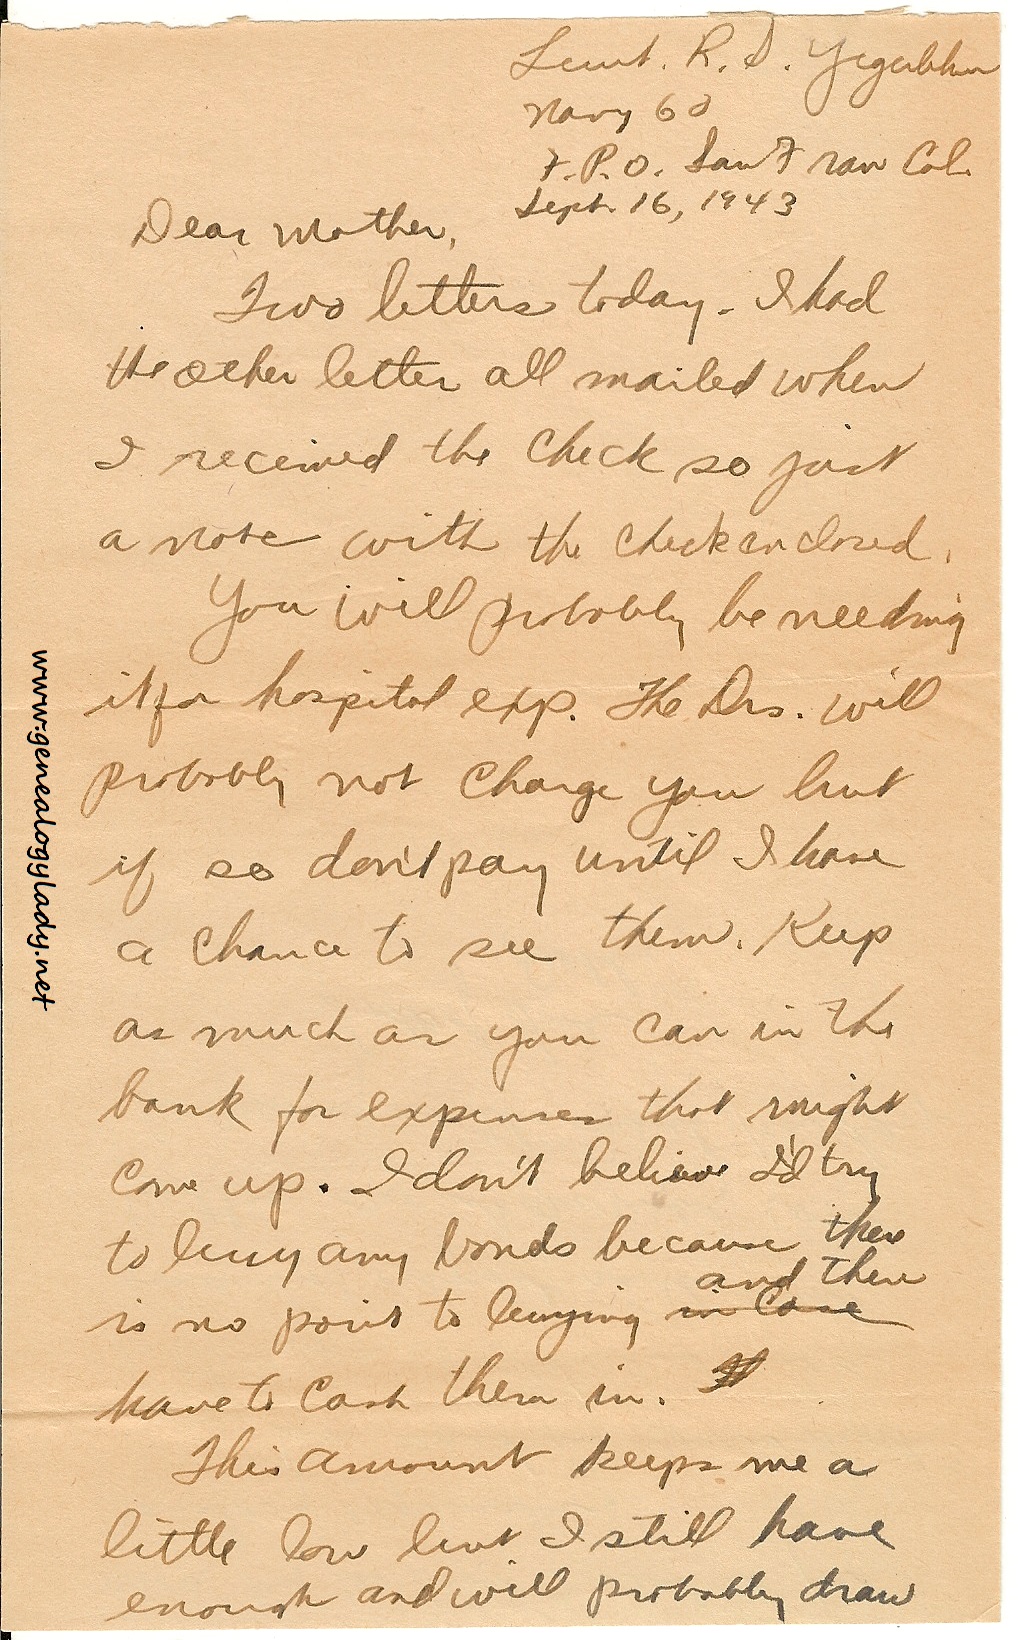 Lieut. R. D. Yegerlehner
Navy 60
F.P.O. San Fran Cal.
Sept. 16, 1943
Dear Mother,
Two letters today. I had
the other letter all mailed when
I received the check so just
a note with the check enclosed.
You will probably be needing
it for hospital exp. The Drs. will
probably not charge you but
if so don't pay until I have
a chance to see them. Keep
as much as you can in the
bank for expenses that might
come up. I don't believe I'd try
to buy any bonds because there
and then
is no point to buying in case
have to cash them in.
This amount keeps me a
little low but I still have
enough and will probably draw
www.genealogylady.net